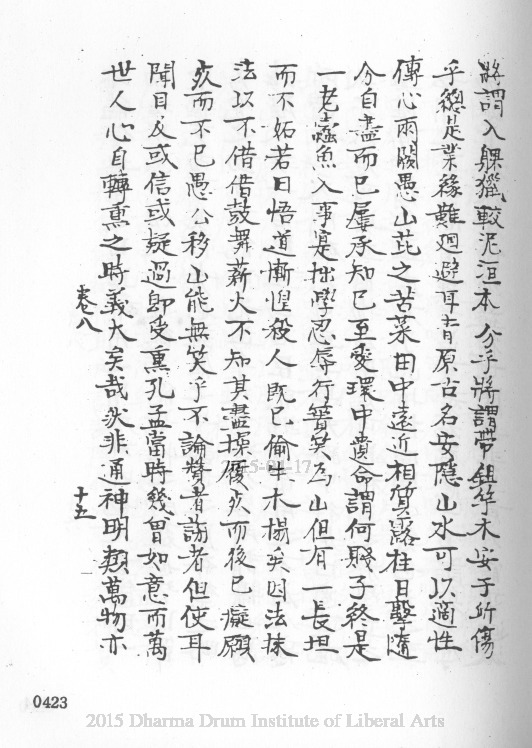 將謂入躶獵較泥洹本分乎將謂帶鉏竽木安于所傷
乎總是業緣難迴避耳青原古名安隱山水可以適性
傳心雨闊愚山芘之苦菜田中遠近相質露柱日擊隨
分自盡而已屢承知已互變環中貴命謂何賤子終是
一老蠹魚入事寔拙學忍辱行簪笑為山但有一長坦
而不妬若曰悟道慚惶殺人既已偷生木榻矣因法抹
法以不借借鼓舞薪火不知其盡操履㡬而後已癡願
㡬而不已愚公移山能無笑乎不論贊者謗者但使耳
聞目及或信或疑過即受熏孔孟當時幾曾如意而萬
世人心自轉熏之時義大矣哉狀非通神明類萬物亦
卷八
十五
0423
2015-01-17
2015 Dharma Drum Institute of Liberal Arts